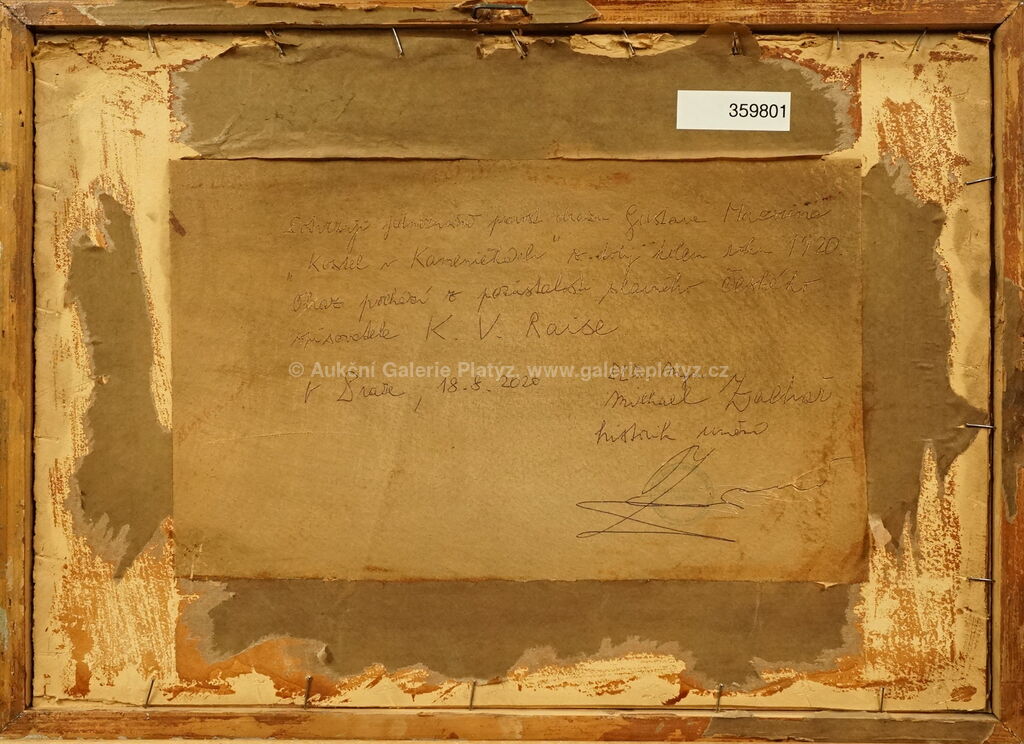 359801
Potvrzuji jednoznačně pravost obrazu Gustava Macouna
"Kostel v Kameničkách" z doby kolem roku 1920.
Obraz pochází z pozůstalosti slavného českého
spisovatele K. V. Raise
© Aukční Galerie Platýz, www.galerieplatyz.cz
V Praze, 18. 8. 2020
Michael Zachař
historik umění